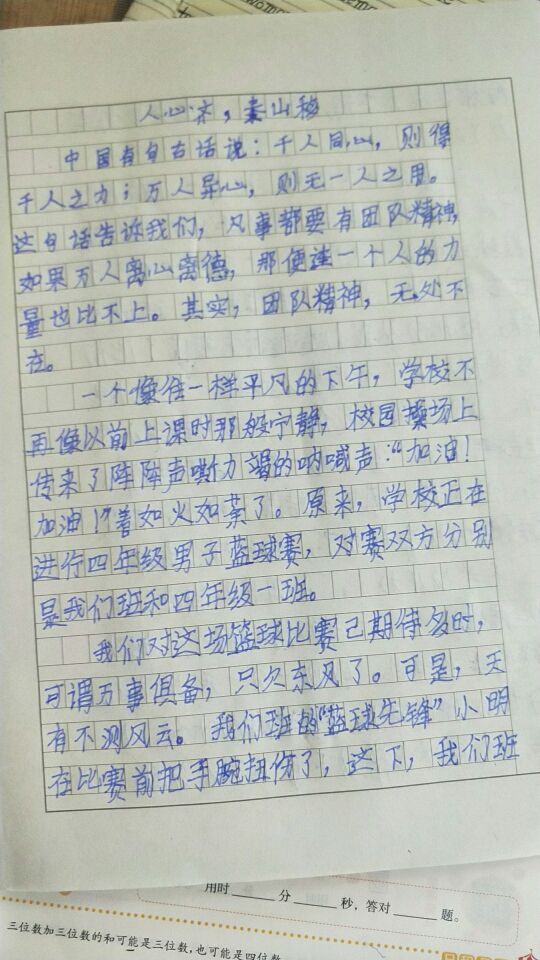 人心齐，泰山移
中国有句古话说：千人同心，则得
千人之力；万人异心，则无一人之用。
这句话告诉我们，凡事都要有团队精神，
如果万人离心离德，那便连一个人的力
量也比不上。其实，团队精神，无处不
在。
一个像往一样平凡的下午，学校不
再像以前上课时那般宁静，校园操场上
传来了阵阵声嘶力竭的呐喊声：“加油！
加油！”着如火如荼了。原来，学校正在
进行四年级男子蓝球赛，对赛双方分别
是我们班和四年级一班。
我们对这场篮球比赛已期待多时，
可谓万事俱备，只欠东风了。可是，天
有不测风云。我们班的“蓝球先锋”小明
在比赛前把手腕扭伤了，这下，我们班
用时____分____秒，答对____题。
三位数加三位数的和可能是三位数，也可能是四位数